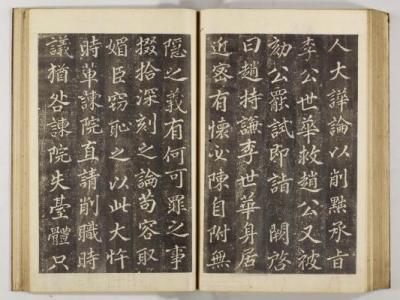 人大譁論以削黜承旨
李公世華救趙公又被
劾公罷試即詣 闕啓
曰趙持謙李世華身居
近密有懷必陳自附無
隱之義有何可罪之事
掇拾深刻之論苟容取
媚臣竊恥之以此大忤
時輩諫院直請削職時
議猶咎諫院失臺體只